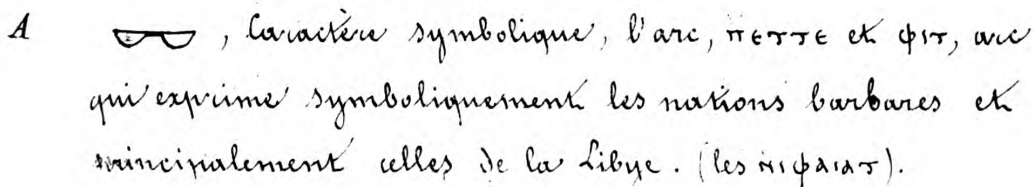 A , Caractère symbolique, l'arc, ⲡⲉⲧⲧⲉ et ⲫⲓⲧ, arc
qui exprime symboliquement les nations barbares et
principalement celles de la Libye. (les ⲛⲓⲫⲁⲓⲁⲧ).